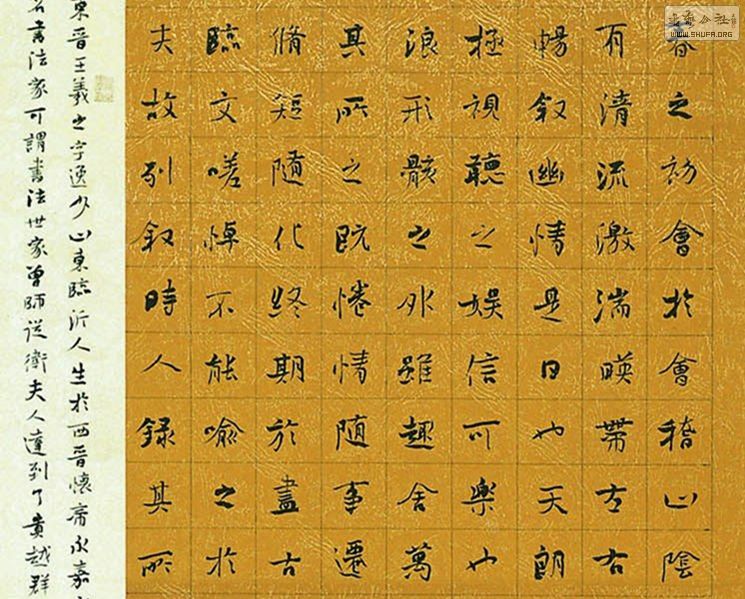 春之初會於會稽山陰
有清流激湍暎帶左右
暢叙幽情是日也天朗
極視聽之娛信可樂也
浪形骸之外雖趣舍萬
其所之既惓情隨事遷
脩短隨化終期於盡古
臨文嗟悼不能喻之於
夫故列叙時人録其所
東晉王羲之字逸少山東臨沂人生於西晉懷帝永嘉
名書法家可謂書法世家曾師從衛夫人達到了貴越群
公社
WWW.SHUFA.ORG